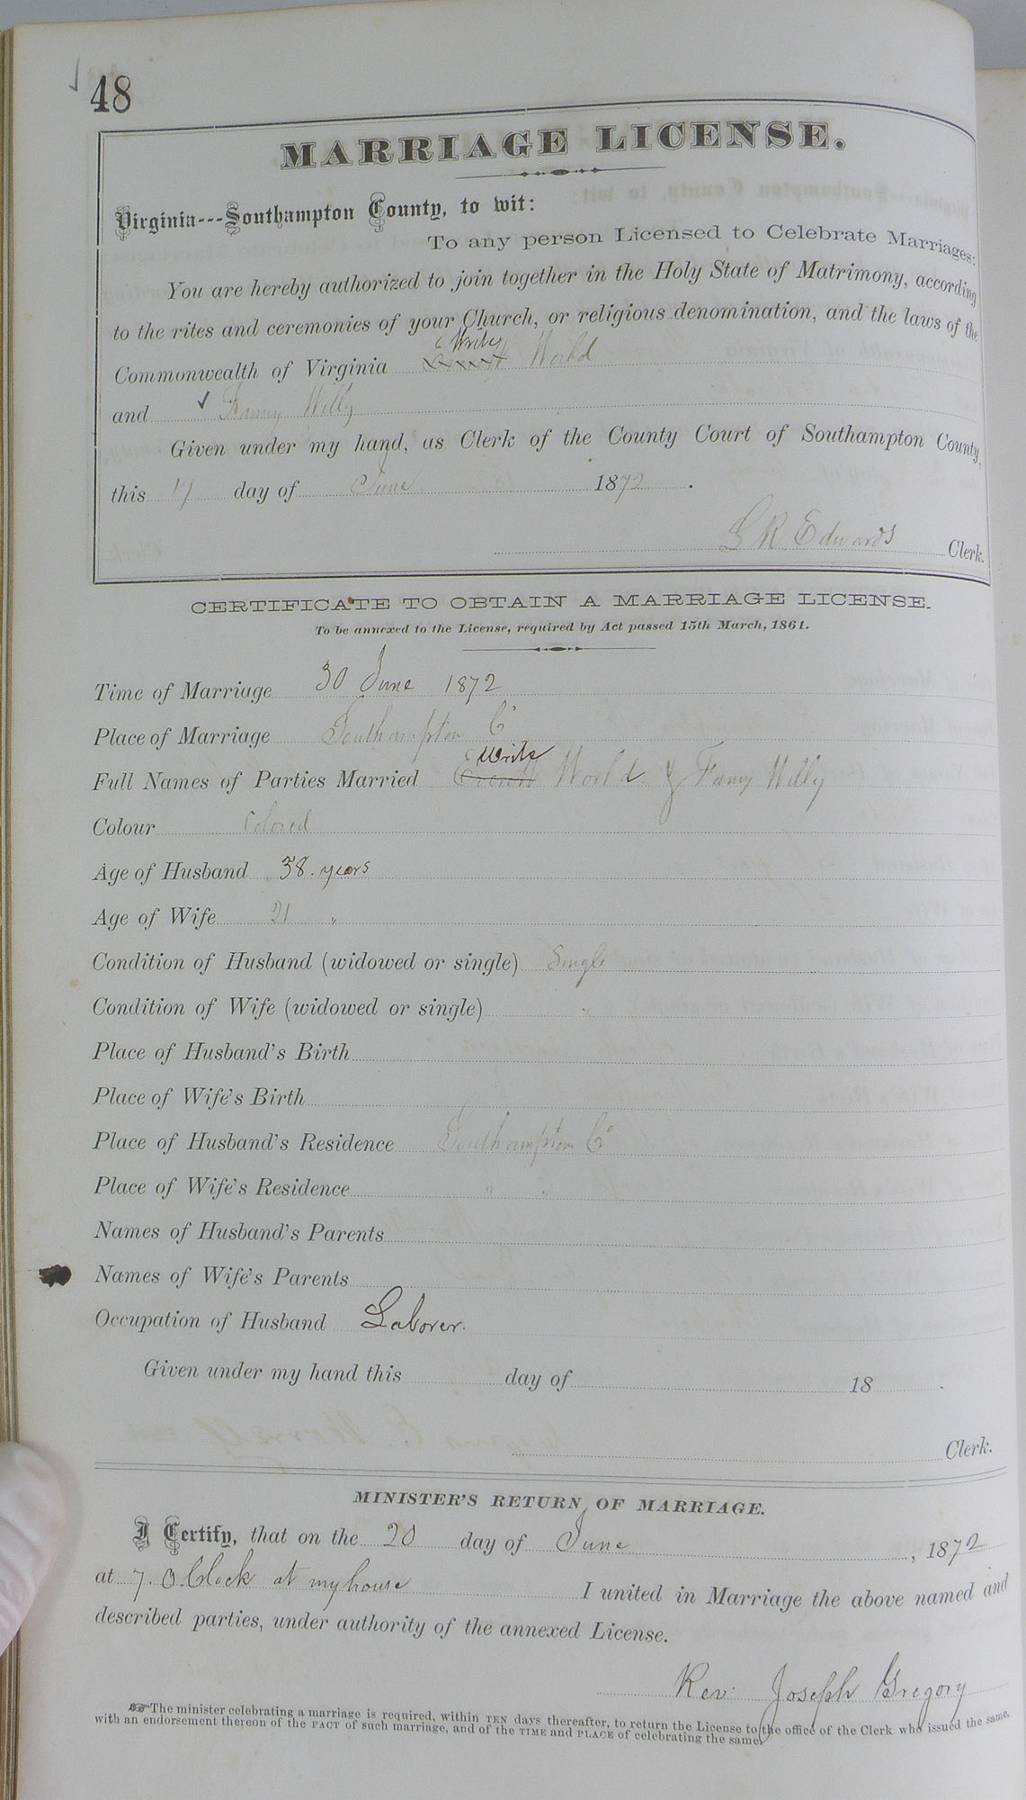 48
MARRIAGE LICENSE.
Virginia---Southampton County, to wit:
To any person Licensed to Celebrate Marriages:
You are hereby authorized to join together in the Holy State of Matrimony, according
to the rites and ceremonies of your Church, or religious denomination, and the laws of the
Commonwealth of Virginia World
and Fanny Willy
Given under my hand, as Clerk of the County Court of Southampton County,
this 17 day of June 1872.
L R Edwards Clerk.
CERTIFICATE TO OBTAIN A MARRIAGE LICENSE.
To be annexed to the License, required by Act passed 15th March, 1861.
Time of Marriage 30 June 1872
Place of Marriage Southampton Co
Full Names of Parties Married Everett World & Fanny Willy
Colour Colored
Age of Husband 38. years
Age of Wife 21 "
Condition of Husband (widowed or single) Single
Condition of Wife (widowed or single) "
Place of Husband's Birth
Place of Wife's Birth
Place of Husband's Residence Southampton Co
Place of Wife's Residence " "
Names of Husband's Parents
Names of Wife's Parents
Occupation of Husband Laborer.
Given under my hand this day of 18 .
Clerk.
MINISTER'S RETURN OF MARRIAGE.
I Certify, that on the 20 day of June, 1872
at 7. O.Clock at my house I united in Marriage the above named and
described parties, under authority of the annexed License.
Rev. Joseph Gregory
The minister celebrating a marriage is required, within TEN days thereafter, to return the License to the office of the Clerk who issued the same,
with an endorsement thereon of the FACT of such marriage, and of the TIME and PLACE of celebrating the same.